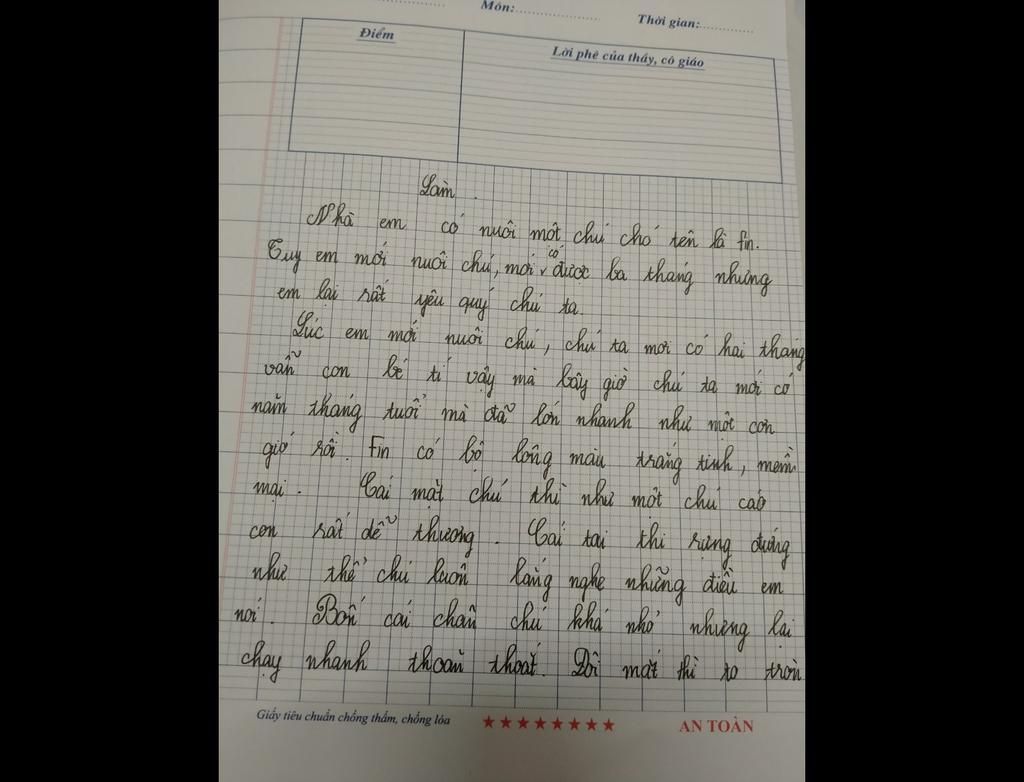 Môn:....................
Thời gian:..............
Điểm
Lời phê của thầy, cô giáo
Làm.
Nhà em có nuôi một chú chó tên là fin.
Tuy em mới nuôi chú, mới có được ba tháng nhưng
em lại rất yêu quý chú ta.
Lúc em mới nuôi chú, chú ta mới có hai tháng
vẫn con bé tí vậy mà bây giờ chú ta mới có
năm tháng tuổi mà đã lớn nhanh như một cơn
gió rồi. Fin có bộ lông màu trắng tinh, mềm
mại. Cái mặt chú thì như một chú cáo
con rất dễ thương. Cái tai thì rựng đứng
như thể chú luôn lắng nghe những điều em
nói. Bốn cái chân chú khá nhỏ nhưng lại
chạy nhanh thoăn thoắt. Đôi mắt thì to tròn
Giấy tiêu chuẩn chống thấm, chống lóa
★★★★★★★★
AN TOÀN